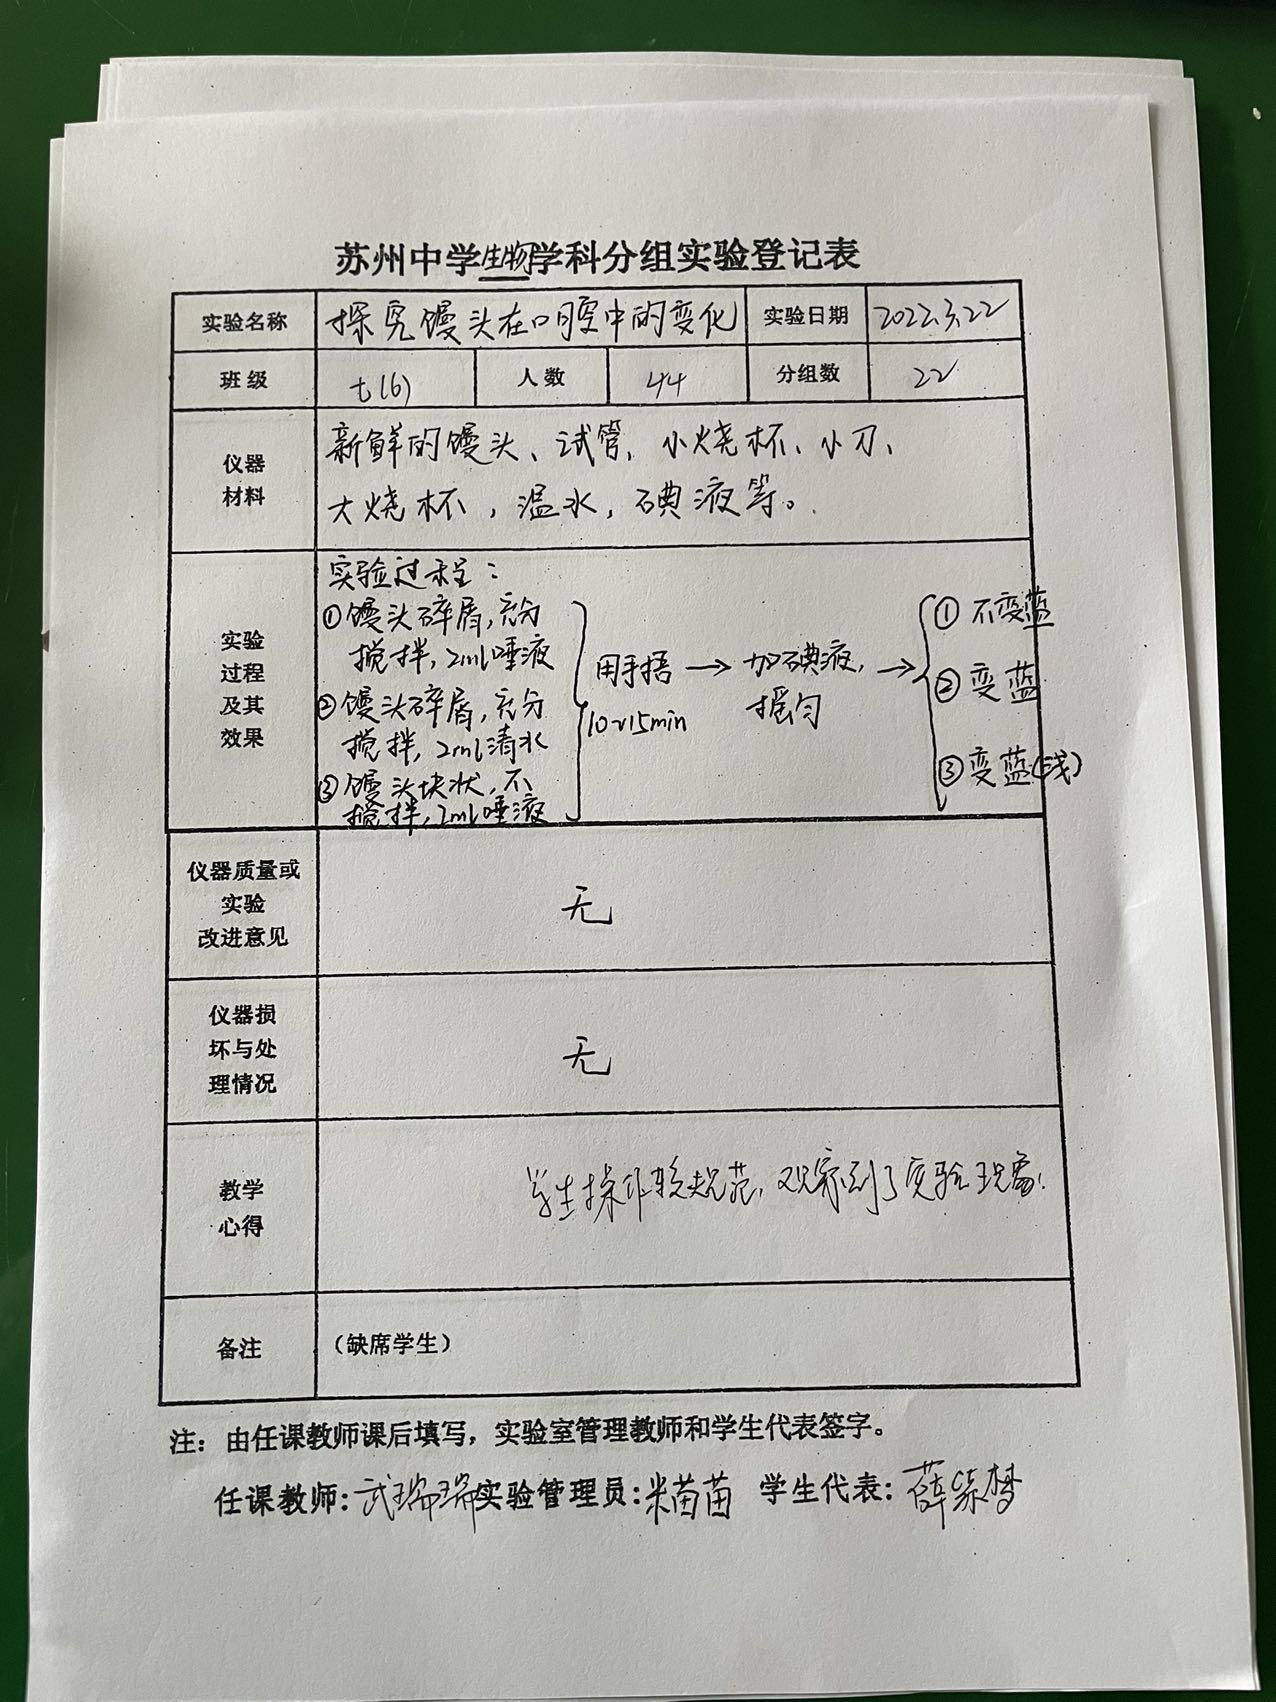 苏州中学生物学科分组实验登记表
实验名称 探究馒头在口腔中的变化 实验日期 2022.3.22
班级 七(6) 人数 44 分组数 22
仪器材料 新鲜的馒头、试管、小烧杯、小刀、
大烧杯，温水，碘液等。
实验过程及其效果
实验过程：
①馒头碎屑，充分
搅拌，2ml唾液
②馒头碎屑，充分
搅拌，2ml清水
③馒头块状，不
搅拌，2ml唾液
用手捂
10~15min
→ 加碘液，
摇匀
→
①不变蓝
②变蓝
③变蓝(浅)
仪器质量或
实验
改进意见
无
仪器损
坏与处
理情况
无
教学
心得
学生操作较规范，观察到了实验现象.
备注 （缺席学生）
注：由任课教师课后填写，实验室管理教师和学生代表签字。
任课教师：武瑞瑞 实验管理员：米苗苗 学生代表：薛